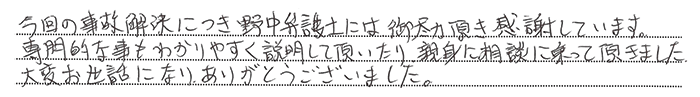 今回の事故解決につき野中弁護士には御尽力頂き感謝しています。
専門的な事もわかりやすく説明して頂いたり、親身に相談に乗って頂きました。
大変お世話になり、ありがとうございました。